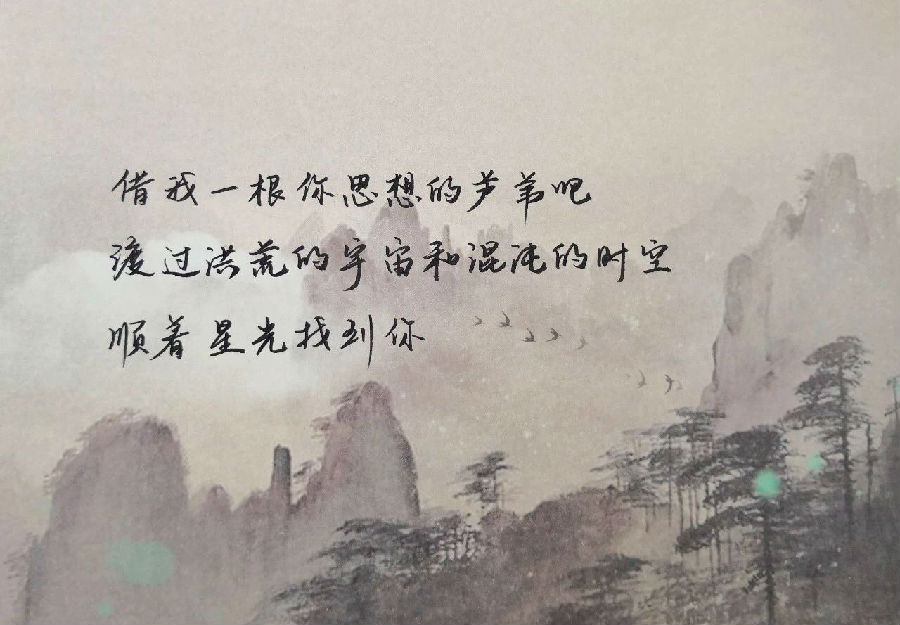 借我一根你思想的芦苇吧
渡过洪荒的宇宙和混沌的时空
顺着星光找到你